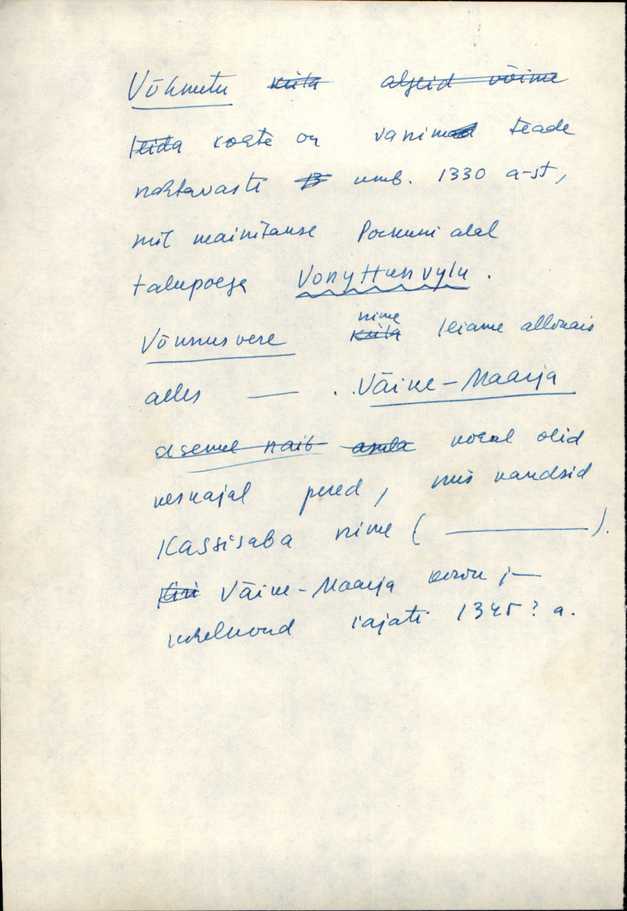 Võhmetu küla algeid võime
leida kohta on vanimad teade
nähtavasti 13 umb. 1330 a-st,
mil mainitakse Porkuni alal
talupoega VonyHunvylu.
nime
Võhnusvere küla leiame allikais
alles — . . Väike-Maarja
asemel asula kohal olid
keskajal pered, mis kandsid
Kassisaba nime ( ——— ).
Väike-Maarja kirik j—
kihelkond rajati 1345? a.